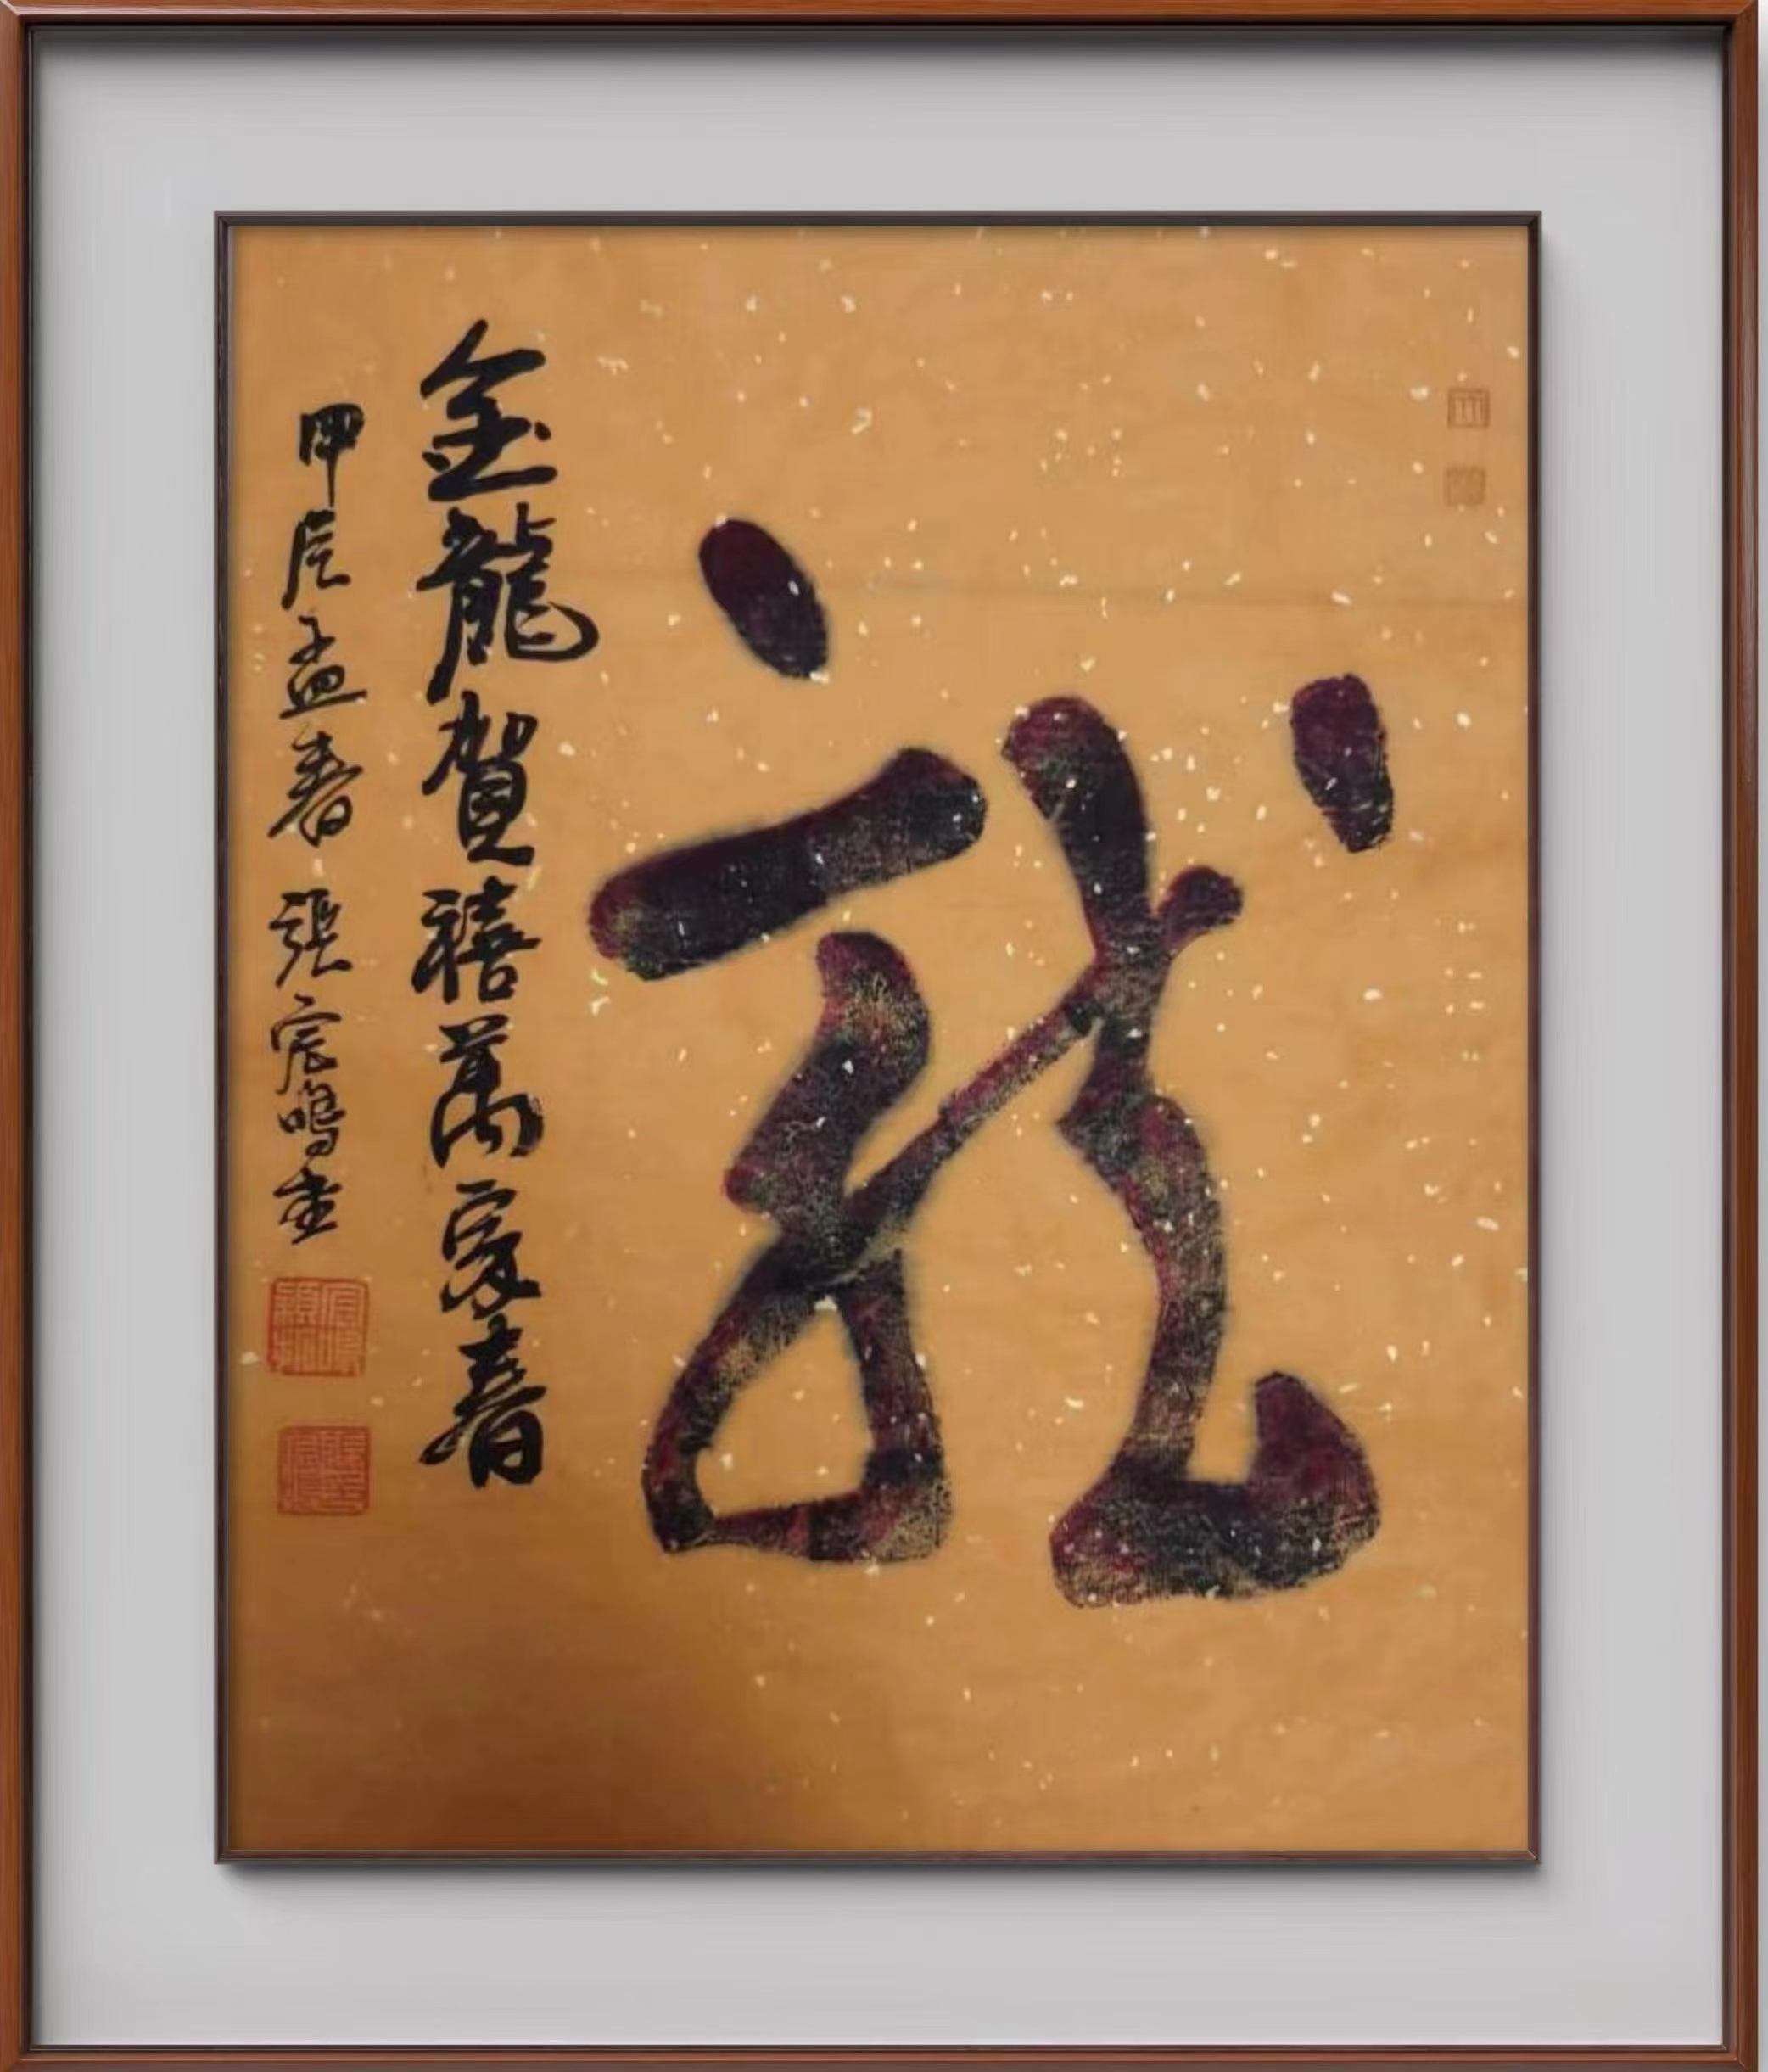 龍
金龍賀禧萬家春
甲辰孟春 張宸鳴書